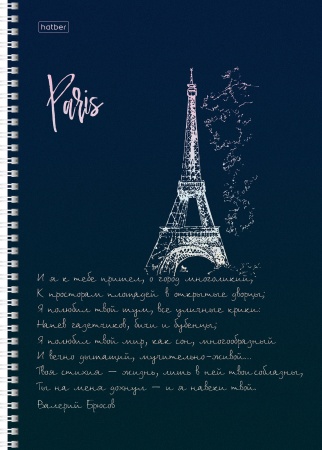 hatber
Paris
И я к тебе пришел, о город многоликий,
К просторам площадей, в открытые дворцы;
Я полюбил твой шум, все уличные крики:
Напев газетчиков, бичи и бубенцы;
Я полюбил твой мир, как сон, многообразный
И вечно дышащий, мучительно-живой...
Твоя стихия — жизнь, лишь в ней твои соблазны,
Ты на меня дохнул — и я навеки твой.
Валерий Брюсов